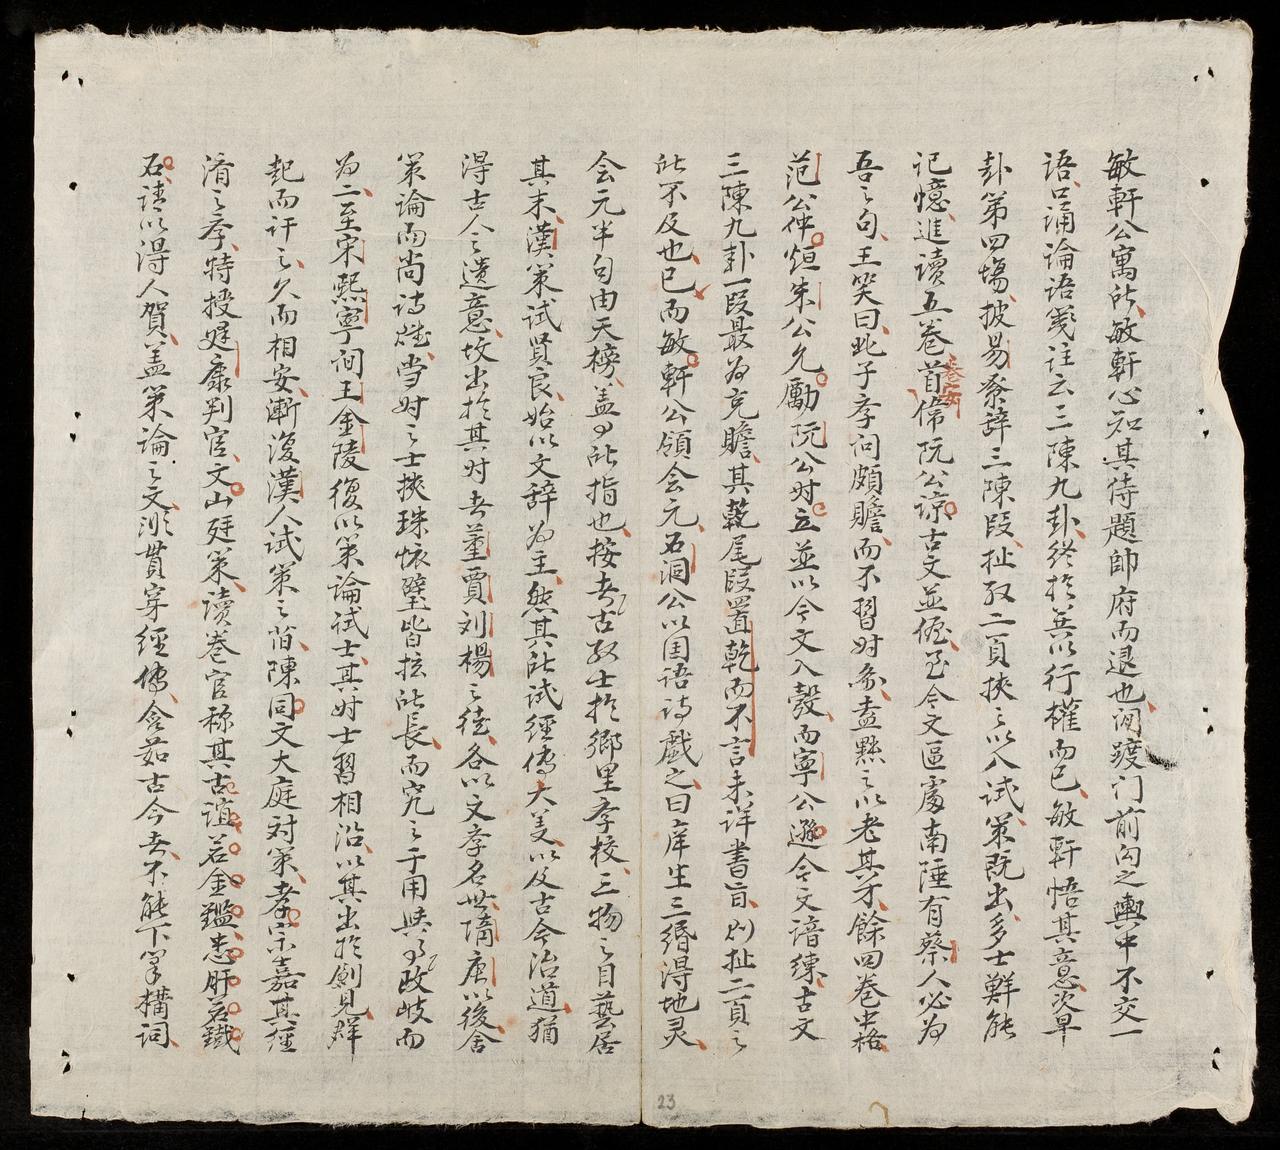 敏軒公寓所敏軒心知其侍題帥府而退也洄踱门前向之輿中不交一
語口誦論語箋註云三陳九卦終於巽以行權而已敏軒悟其意次早
卦第四場披易系辞三陳段扯取二頁挾之以入試策既出多士鮮能
记憶進讀五巻首傄阮公諒古文並偓至今文區處南陲有蔡人必为
吾之句王笑曰此子孝问頗贍而不習对象盍黜之以老其才餘四巻中格
范公仲烜朱公允勵阮公时立並以今文入彀而寧公遜今文諳練古文
三陳九卦一段最为克贍其乾尾段置乾而不言未详書旨则扯二頁之
所不及也已而敏軒公領会元石洞公以国语诗戲之曰庠生三緡得地灵
会元半句由天榜盖り所指也按考古取士於鄉里孝校三物之目藝居
其末漢策试贤良始以文辞为主然其所试經傳大美以及古今治道猶
得古人之遗意坟出於其时者董賈刘楊之徒各以文孝名世隋唐以後舍
策論而尚诗赋当时之士挾珠怀璧皆拡所長而究之于用與り政岐而
为二至宋熙寧间王金陵復以策論试士其时士習相沿以其出於創見群
起而讦之久而相安漸復漢人试策之旧陳同文大庭对策孝宗嘉其經
濟之孝特授建康判官文山廷策读巻官称其古谊若金鑑忠肝若鐵
石请以得人賀盖策論之文淤貫穿經傳含茹古今者不能下筆構詞
巻安
23